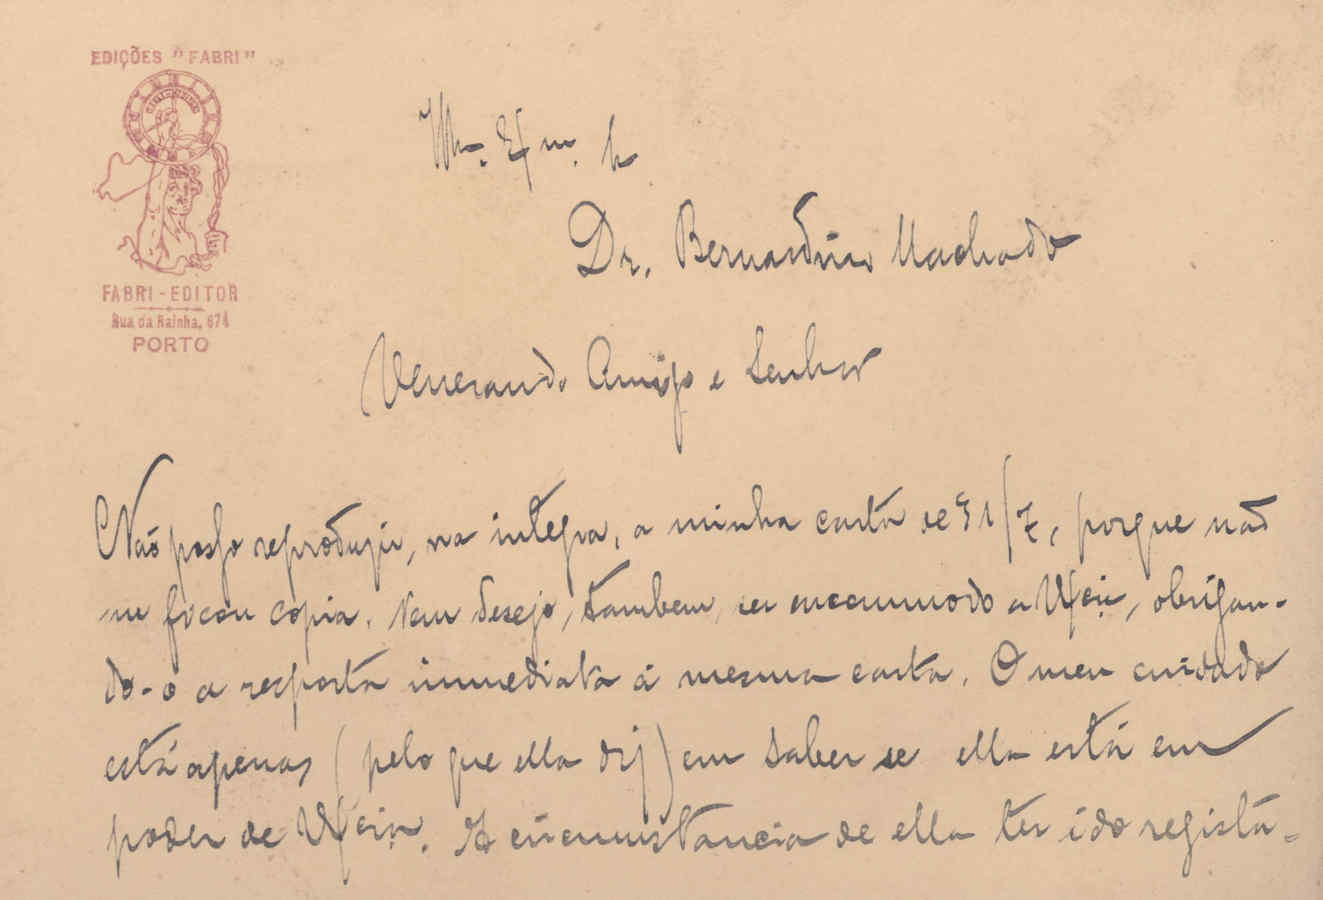 EDIÇÕES "FABRI"
FABRI-EDITOR
Rua da Rainha, 674
PORTO
Dr. Bernardino Machado
Venerando Amigo e Senhor
Não posso reproduzir, na integra, a minha carta de 31/7, porque não
me ficou copia. Nem desejo, também, ser encommodo a V. Exciª, obrigan-
do-o a resposta immediata á mesma carta. O meu cuidado
está apenas (pelo que ella diz) em saber se ella está em
poder de V. Exciª. A circumstancia de ella ter ido regista-